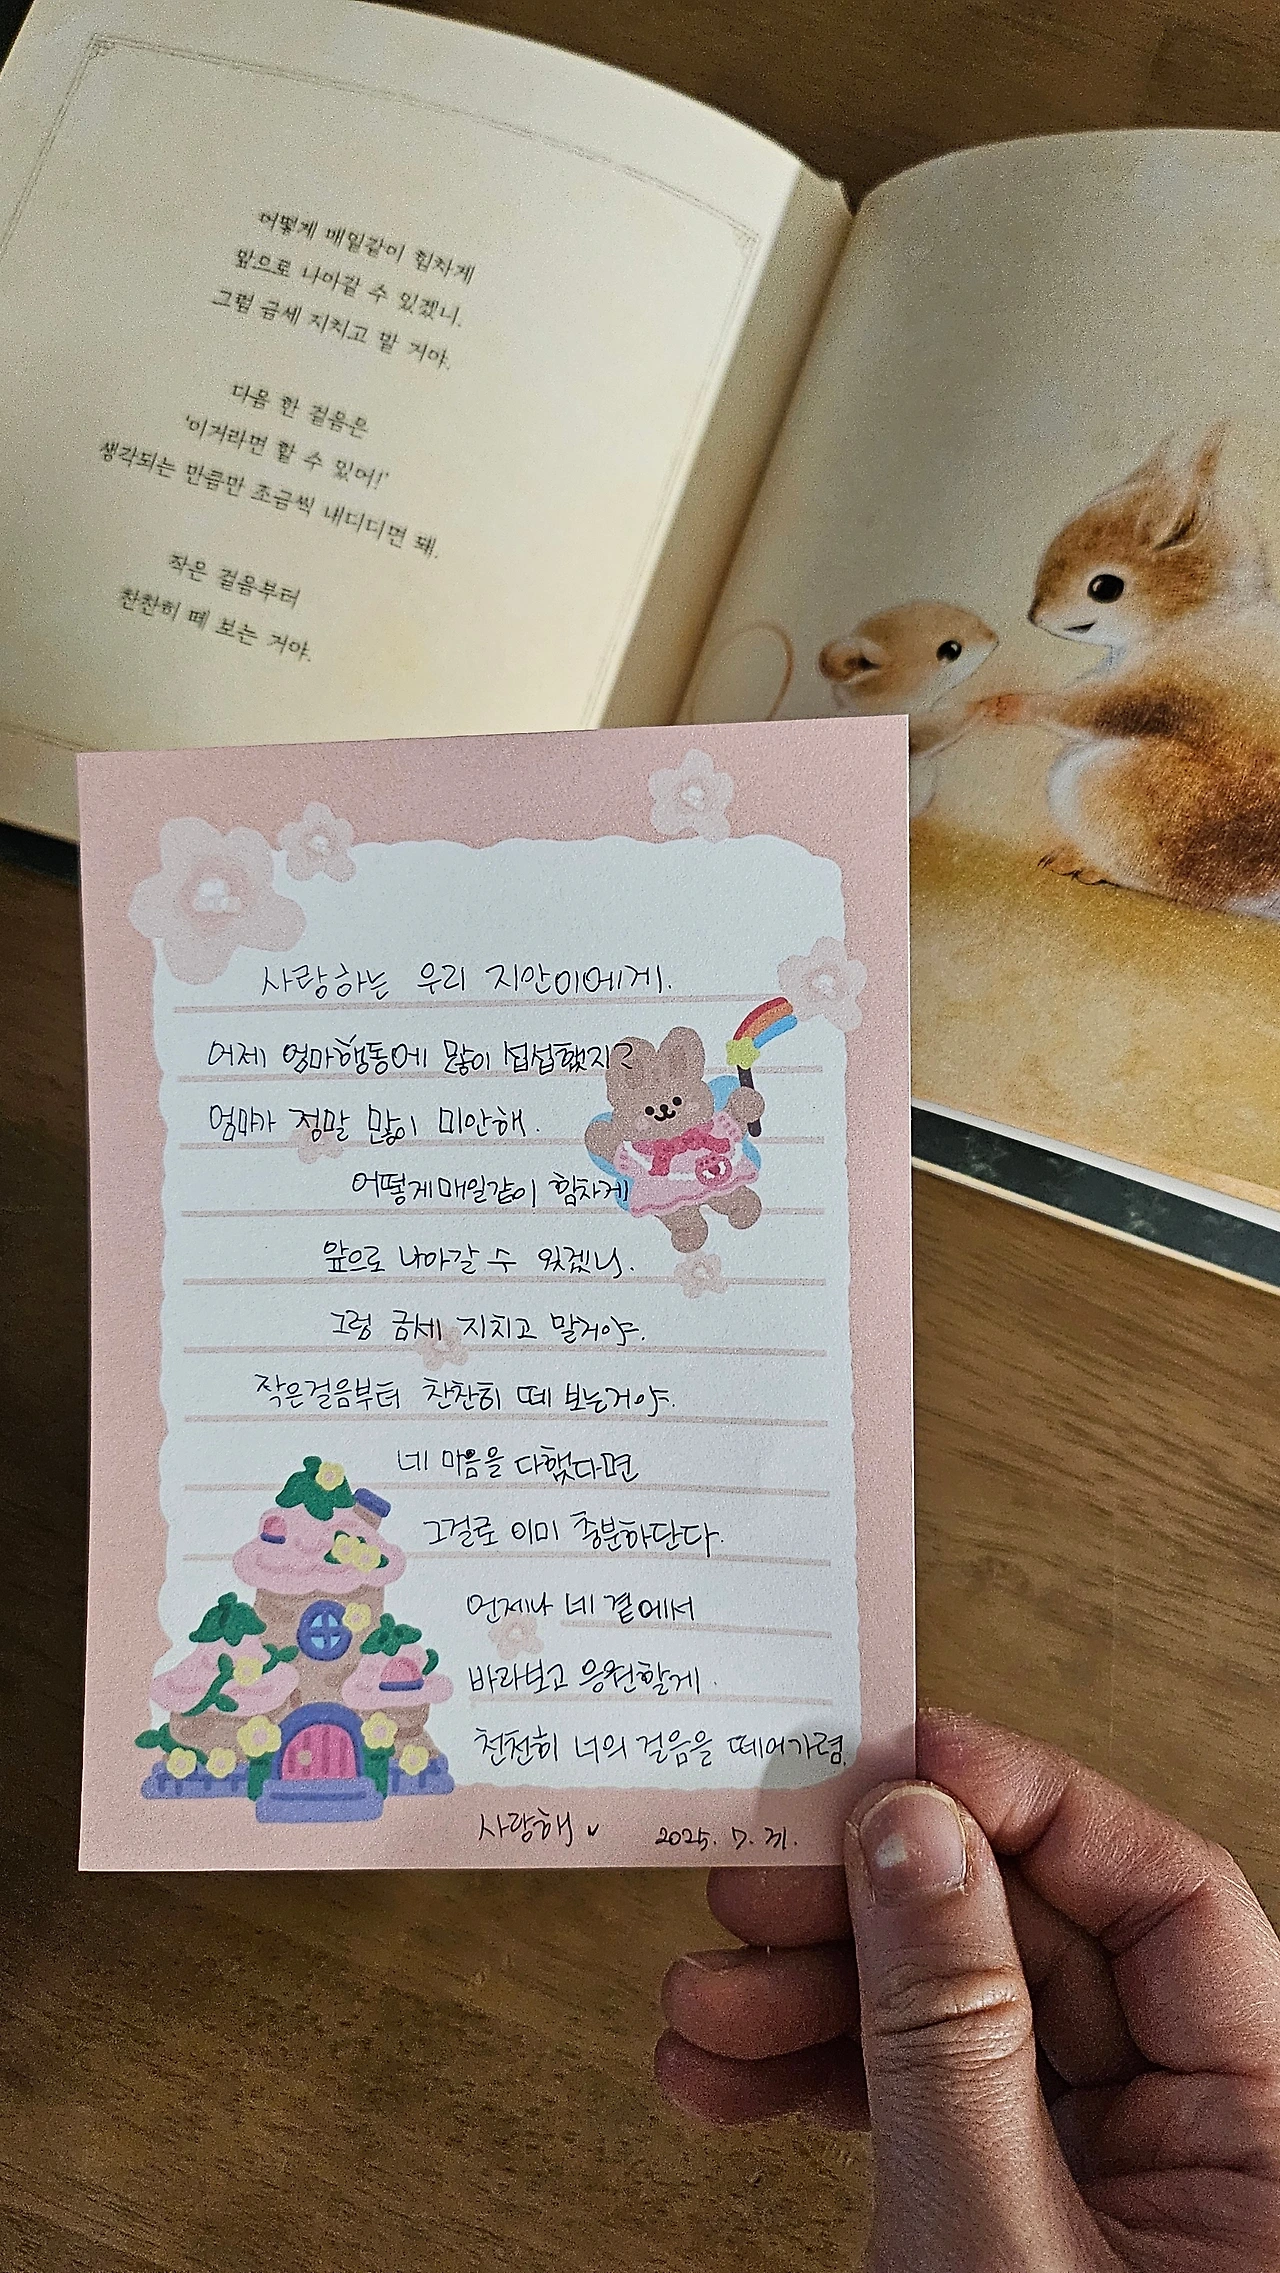 어떻게 매일같이 힘차게
앞으로 나아갈 수 있겠니.
그럼 금세 지치고 말 거야.
다음 한 걸음은
'이거라면 할 수 있어!'
생각되는 만큼만 조금씩 내디디면 돼.
작은 걸음부터
찬찬히 떼 보는 거야.
사랑하는 우리 지안이에게.
어제 엄마행동에 많이 섭섭했지?
엄마가 정말 많이 미안해.
어떻게매일같이 힘차게
앞으로 나아갈 수 있겠니.
그럼 금세 지치고 말거야.
작은걸음부터 찬찬히 떼 보는거야.
네 마음을 다했다면
그걸로 이미 충분하단다.
언제나 네 곁에서
바라보고 응원할게.
천천히 너의 걸음을 떼어가렴.
사랑해 2025. 7. 31.